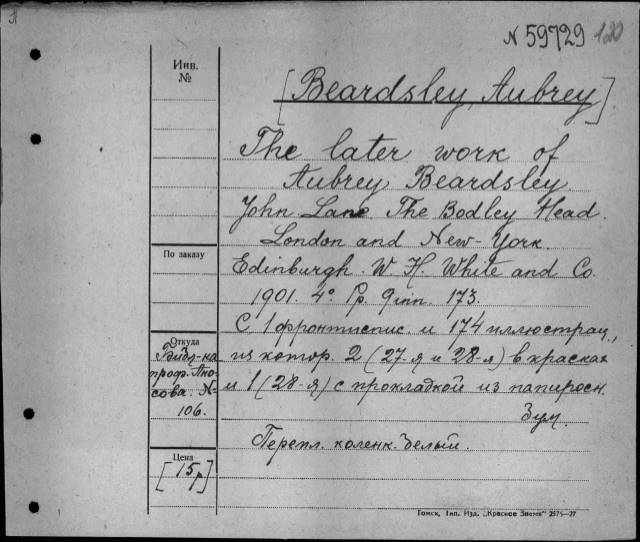 N 59729 120
Инв.
№
[Beardsley, Aubrey]
The later work of
Aubrey Beardsley
John Lane The Bodley Head.
London and New-York.
По заказу
Edinburgh. W. H. White and Co.
1901. 4°. 173.
С 1 фронтиспис. и 174 иллюстрац.,
Откуда
из котор. 2 (27-я и 28-я) в красках
и 1 (28-я) с прокладкой из папиросн.
проф.
106.
Перепл. коленк. белый.
Цена
[15р]
Томск, Тип. Изд. „Красное Знамя" 2575—27